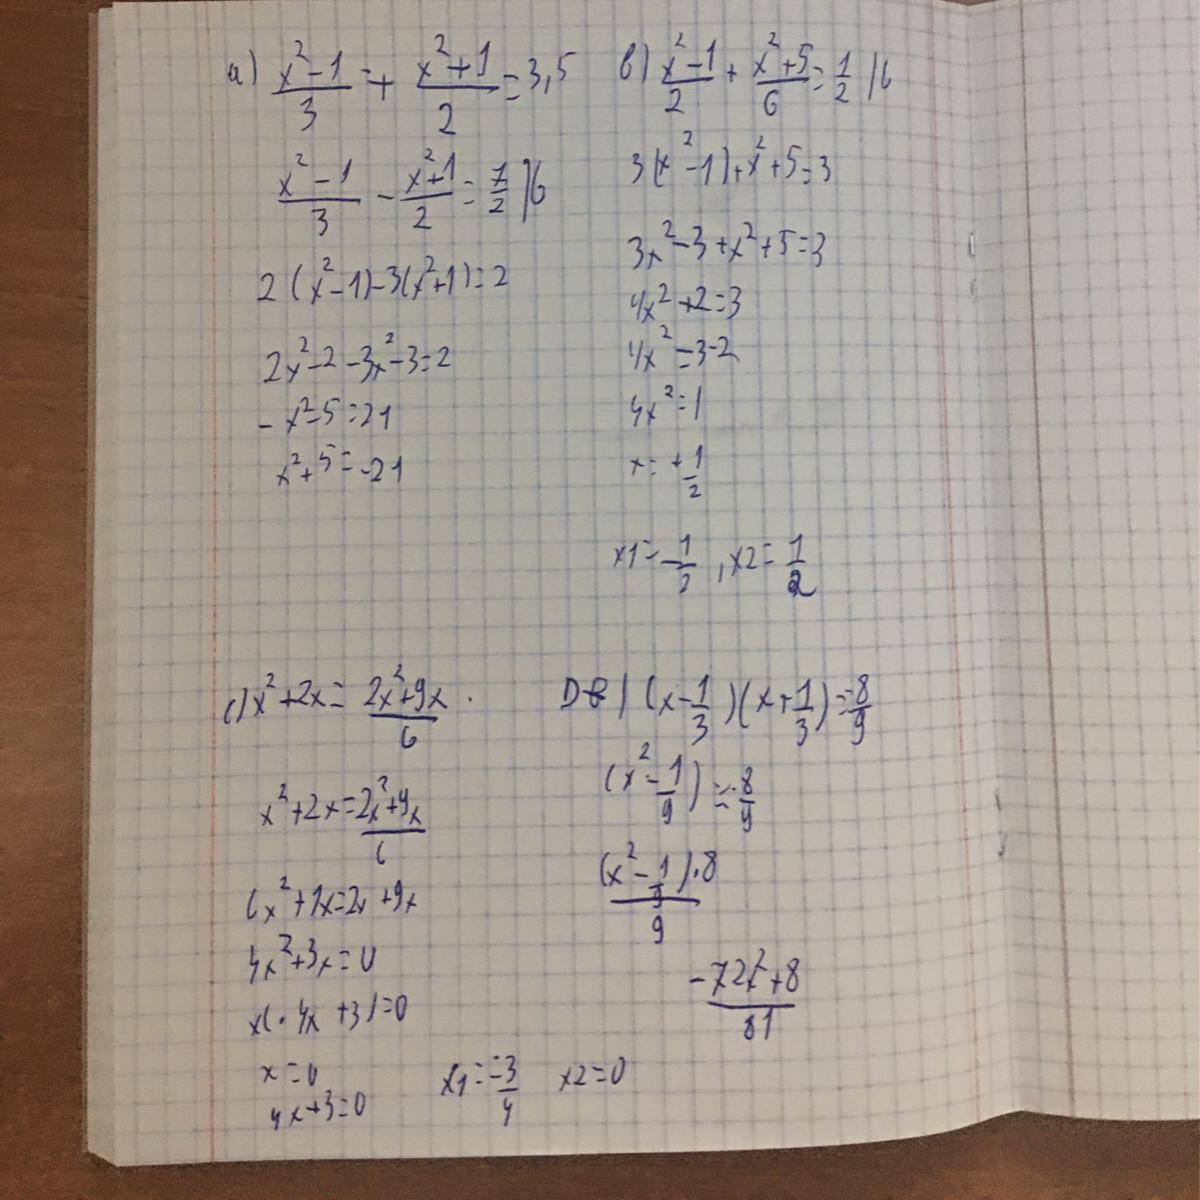 a) (x²-1)/3 =+ (x²+1)/2 = 3,5
(x²-1)/3 - (x²+1)/2 = 7/2 |6
2(x²-1)-3(x²+1)=2
2x²-2-3x²-3=2
-x²-5=21
x²+5=-21
b) (x²-1)/2 + (x²+5)/6 = 1/2 |6
3(x²-1)+x²+5=3
3x²-3+x²+5=3
4x²+2=3
4x²=3-2
4x²=1
x=+1/2
x1=-1/2, x2=1/2
c) x²+2x=(2x²+9x)/6
x²+2x=(2x²+9x)/6
4x²+3x=0
x(·4x+3)=0
x=0
4x+3=0
x1=-3/4 x2=0
(x-1/3)(x+1/3)=-8/9
(x²-1/9)=-8/9
((x²-1/9)·8)/9
(-72x²+8)/81